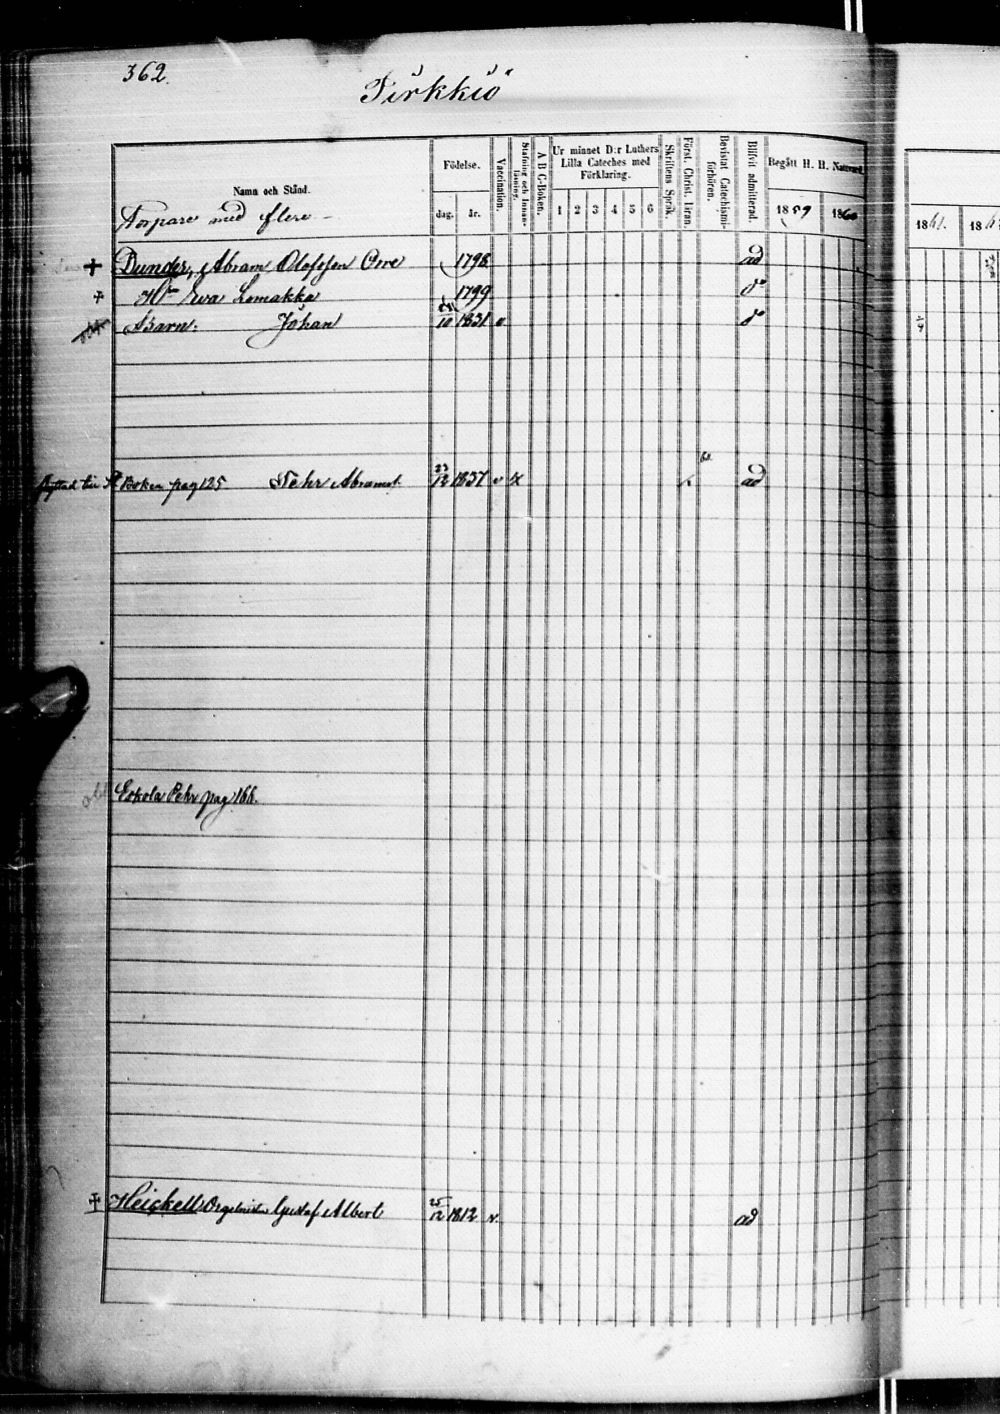 362.
Pirkkiö
Namn och Stånd.
Födelse.
dag. år.
Vaccination.
Stafning och Innanläsning.
A B C-Boken.
Ur minnet D:r Luthers Lilla Cateches med Förklaring.
1 2 3 4 5 6
Skriftens Språk.
Först. Christ. läran.
Bevistat Catechismi-förhören.
Blifvit admitterad.
Begått H. H. Nattvard.
1859 1860
1861. 186
Torpare med flere
+ Dunder, Abram Olofsson 1798 ad
+ H:u Eva Lomakka 1799 d:o
Barn: Johan 10 1831 v d:o
Boken pag 125 Pehr Abramss. 23/12 1837 v x ad
Eskola Pehr pag 166.
+ Heickell Gustaf Albert 25/12 1812 v. ad